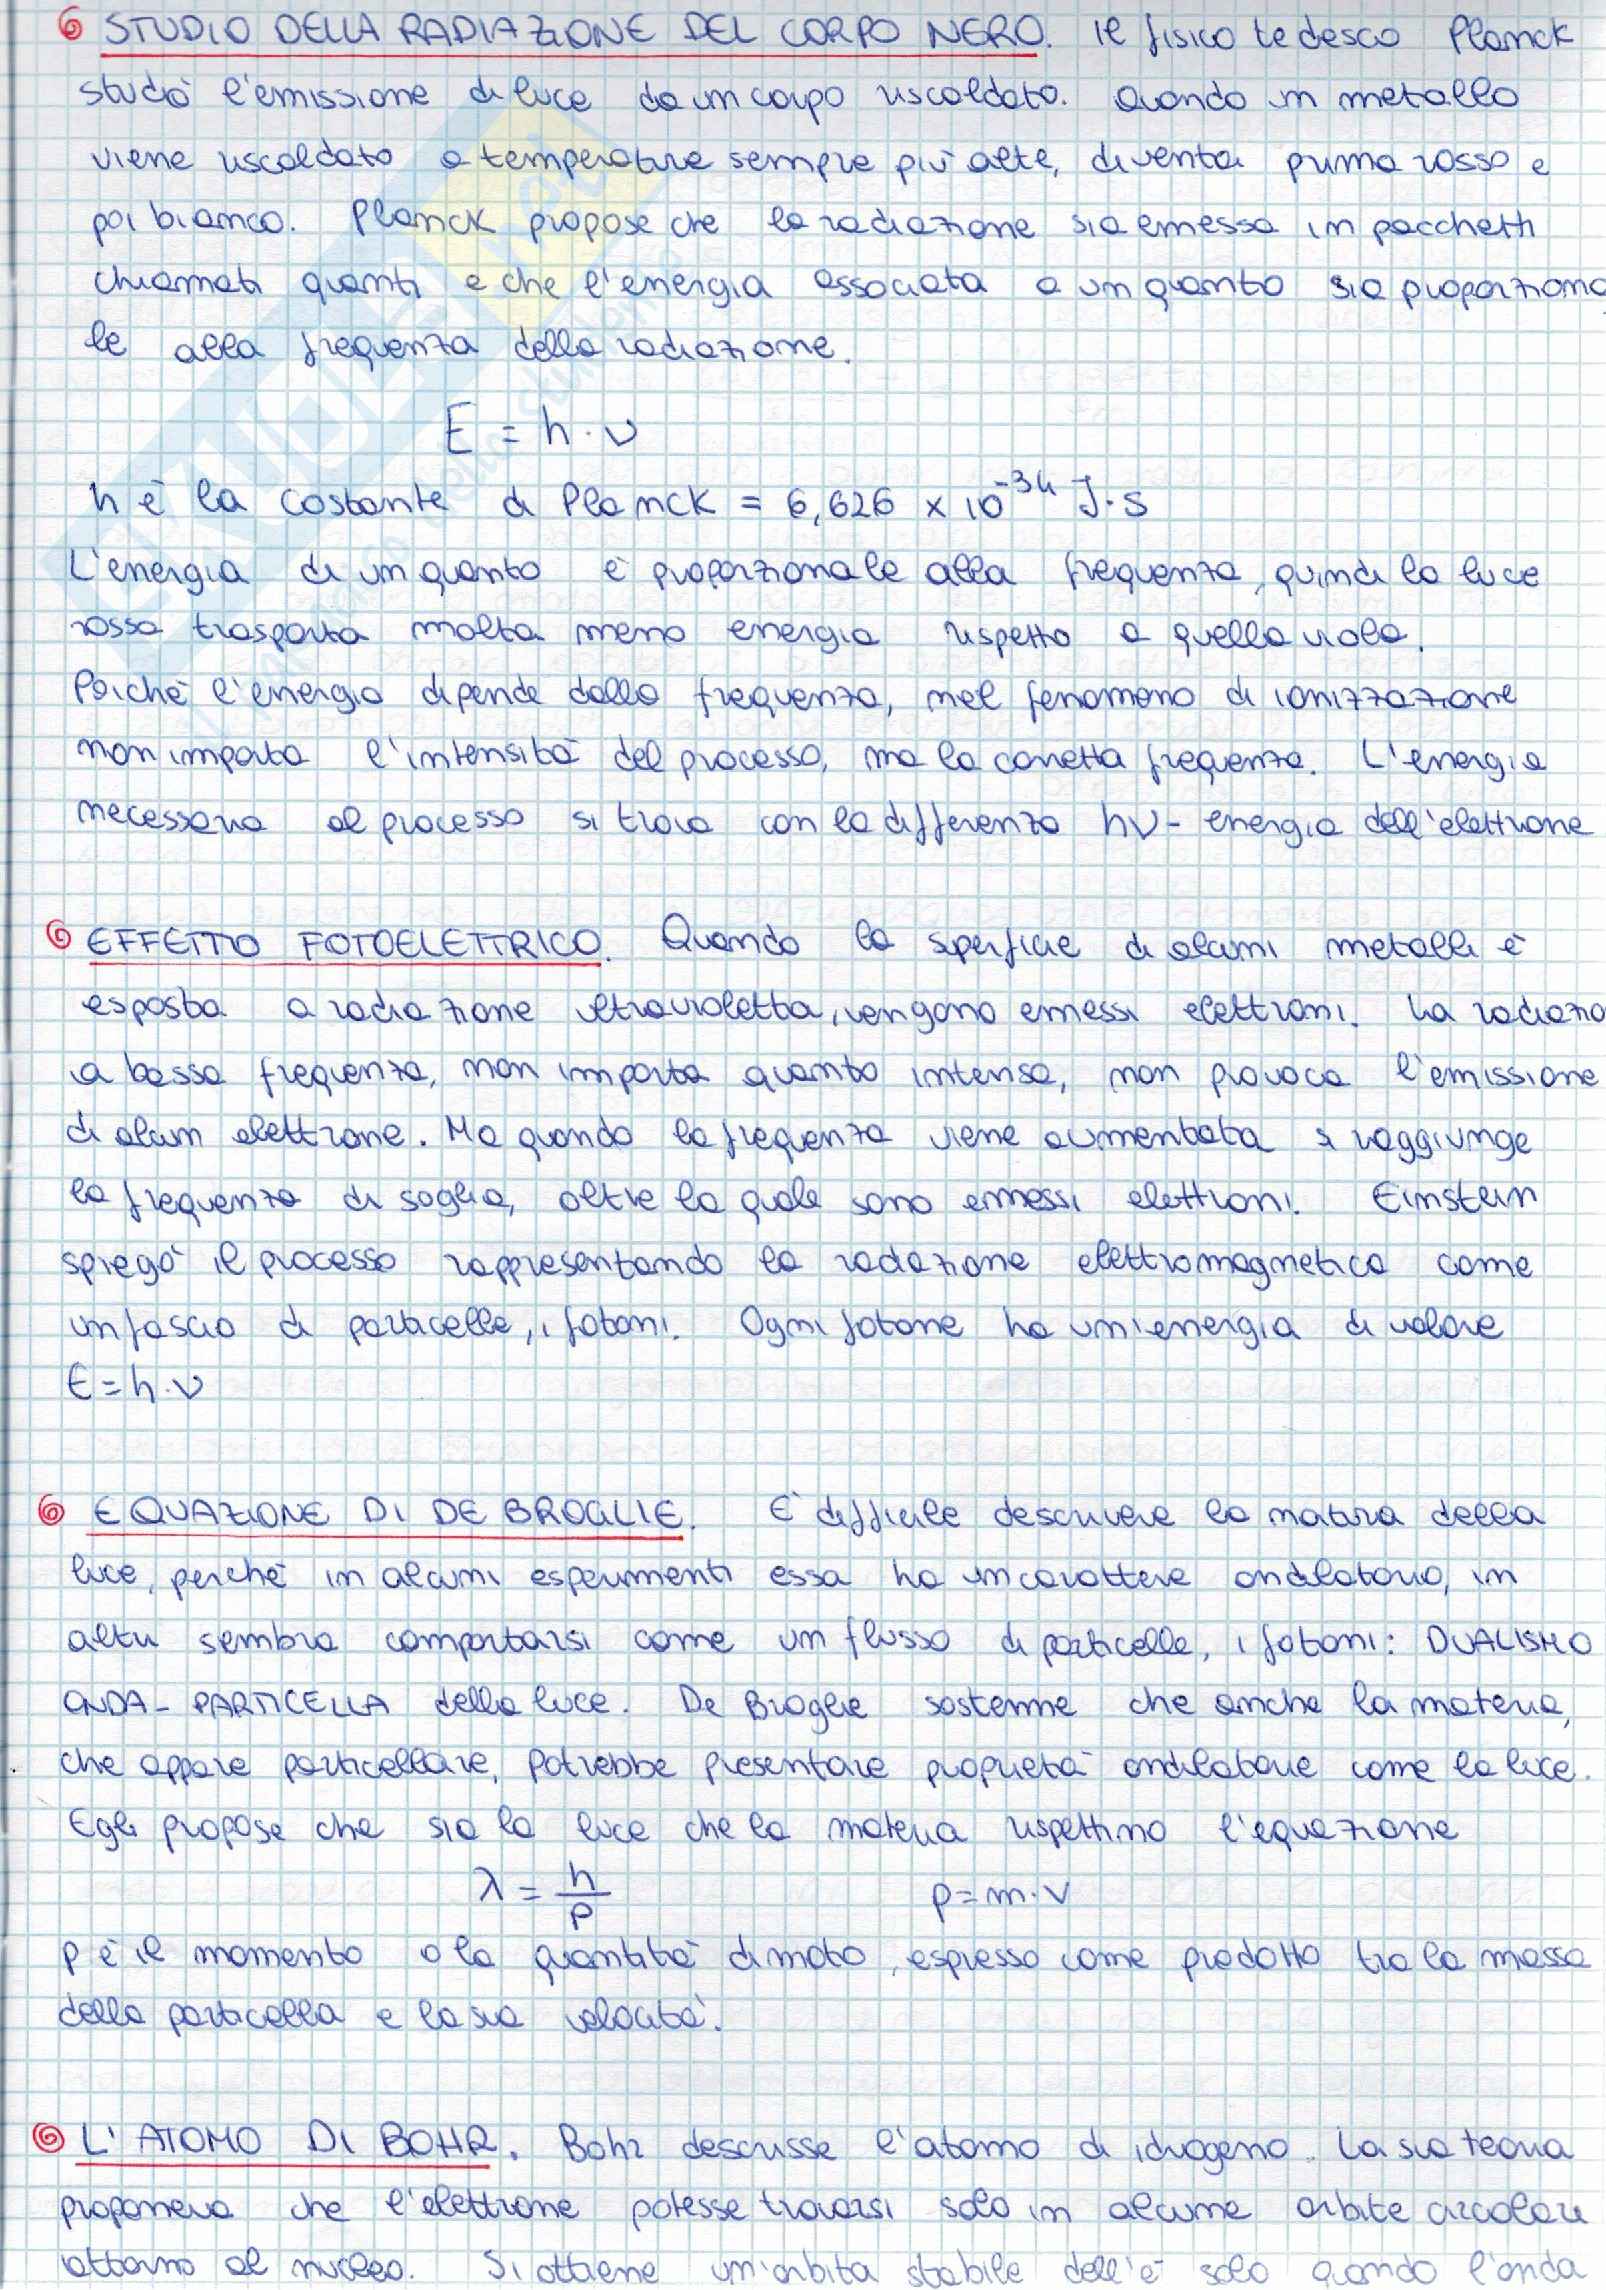 STUDIO DELLA RADIAZIONE DEL CORPO NERO. Il fisico tedesco Planck
studiò l'emissione di luce da un corpo riscaldato. Quando un metallo
viene riscaldato a temperature sempre più alte, diventa prima rosso e
poi bianco. Planck propose che la radiazione sia emessa in pacchetti
chiamati quanti e che l'energia associata a un quanto sia proporziona
le alla frequenza della radiazione.
E = h · ν
h è la costante di Planck = 6,626 × 10⁻³⁴ J·s
L'energia di un quanto è proporzionale alla frequenza, quindi la luce
rossa trasporta molta meno energia rispetto a quella viola.
Poiché l'energia dipende dalla frequenza, nel fenomeno di ionizzazione
non importa l'intensità del processo, ma la corretta frequenza. L'energia
necessaria al processo si trova con la differenza hν - energia dell'elettrone
EFFETTO FOTOELETTRICO. Quando la superficie di alcuni metalli è
esposta a radiazione ultravioletta, vengono emessi elettroni. La radiazio
a bassa frequenza, non importa quanto intensa, non provoca l'emissione
di alcun elettrone. Ma quando la frequenza viene aumentata si raggiunge
la frequenza di soglia, oltre la quale sono emessi elettroni. Einstein
spiegò il processo rappresentando la radiazione elettromagnetica come
un fascio di particelle, i fotoni. Ogni fotone ha un'energia di valore
E = h · ν
EQUAZIONE DI DE BROGLIE. È difficile descrivere la natura della
luce, perché in alcuni esperimenti essa ha un carattere ondulatorio, in
altri sembra comportarsi come un flusso di particelle, i fotoni: DUALISMO
ONDA-PARTICELLA della luce. De Broglie sostenne che anche la materia,
che appare particellare, potrebbe presentare proprietà ondulatorie come la luce.
Egli propose che sia la luce che la materia rispettino l'equazione
λ = h/p p = m·v
p è il momento o la quantità di moto, espresso come prodotto tra la massa
della particella e la sua velocità.
L'ATOMO DI BOHR. Bohr descrisse l'atomo di idrogeno. La sua teoria
proponeva che l'elettrone potesse trovarsi solo in alcune orbite circolari
attorno al nucleo. Si ottiene un'orbita stabile dell'e⁻ solo quando l'onda